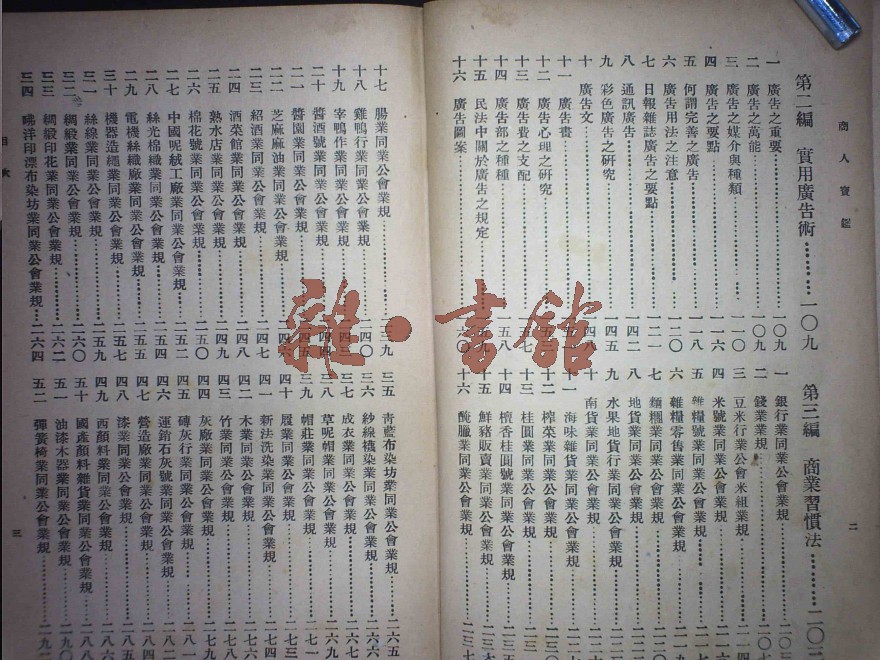 商人寶鑑
二
第二編 實用廣告術………一〇九
一 廣告之重要………一〇九
二 廣告之萬能………一〇九
三 廣告之媒介與種類………一一〇
四 廣告之要點………一一六
五 何謂完善之廣告………一一八
六 廣告用法之注意………一二〇
七 日報雜誌廣告之要點………一二一
八 通訊廣告………一四二
九 彩色廣告之研究………一四五
十 廣告文………一四八
十一 廣告畫
十二 廣告心理之研究
十三 廣告費之支配
十四 廣告部之種種………一五八
十五 民法中關於廣告之規定
十六 廣告圖案………一六〇
第三編 商業習慣法………二〇三
一 銀行業同業公會業規
二 錢業業規
三 豆米行業公會米租業規
四 米號業同業公會業規
五 雜糧號業同業公會業規
六 雜糧零售業同業公會業規
七 麵糰業同業公會業規
八 地貨業同業公會業規
九 水果地貨行業同業公會業規
十 南貨業同業公會業規
十一 海味雜貨業同業公會業規
十二 榨菜業同業公會業規
十三 桂圓業同業公會業規
十四 檀香桂圓號業同業公會業規
十五 鮮豬販賣業同業公會業規
十六 醃臘業同業公會業規
十七 腸業同業公會業規………二三九
十八 雞鴨行業同業公會業規………二四〇
十九 宰鴨作業同業公會業規………二四三
二十 醬酒號業同業公會業規………二四四
二一 醬園業同業公會業規………二四五
二二 芝麻麻油業同業公會業規………二四六
二三 紹酒業同業公會業規………二四七
二四 酒菜館業同業公會業規………二四九
二五 熟水店業同業公會業規………二四九
二六 棉花號業同業公會業規………二五〇
二七 中國呢絨工廠業同業公會業規………二五二
二八 絲光棉織業同業公會業規………二五四
二九 電機絲織廠業同業公會業規………二五五
三十 機器造繩業同業公會業規………二五七
三一 絲線業同業公會業規………二五九
三二 綢緞業同業公會業規………二六〇
三三 綢緞印花業同業公會業規………二六二
三四 嗁洋印漂布染坊業同業公會業規………二六四
三五 青藍布染坊業同業公會業規………二六五
三六 紗線襪染業同業公會業規………二六六
三七 成衣業同業公會業規………二六七
三八 草呢帽業同業公會業規………二六九
三九 帽莊業同業公會業規………二七一
四十 履業同業公會業規………二七三
四一 新法洗染業同業公會業規………二七四
四二 木業同業公會業規………二七六
四三 竹業同業公會業規………二七八
四四 灰廠業同業公會業規………二七九
四五 磚灰行業同業公會業規
四六 運銷石灰號業同業公會業規………二八二
四七 營造廠業同業公會業規………二八四
四八 漆業同業公會業規………二八五
四九 西顏料業同業公會業規
五十 國產顏料雜貨業同業公會業規………二八八
五一 油漆木器業同業公會業規………二九〇
五二 彈簧椅業同業公會業規
目次
三
雜·書館